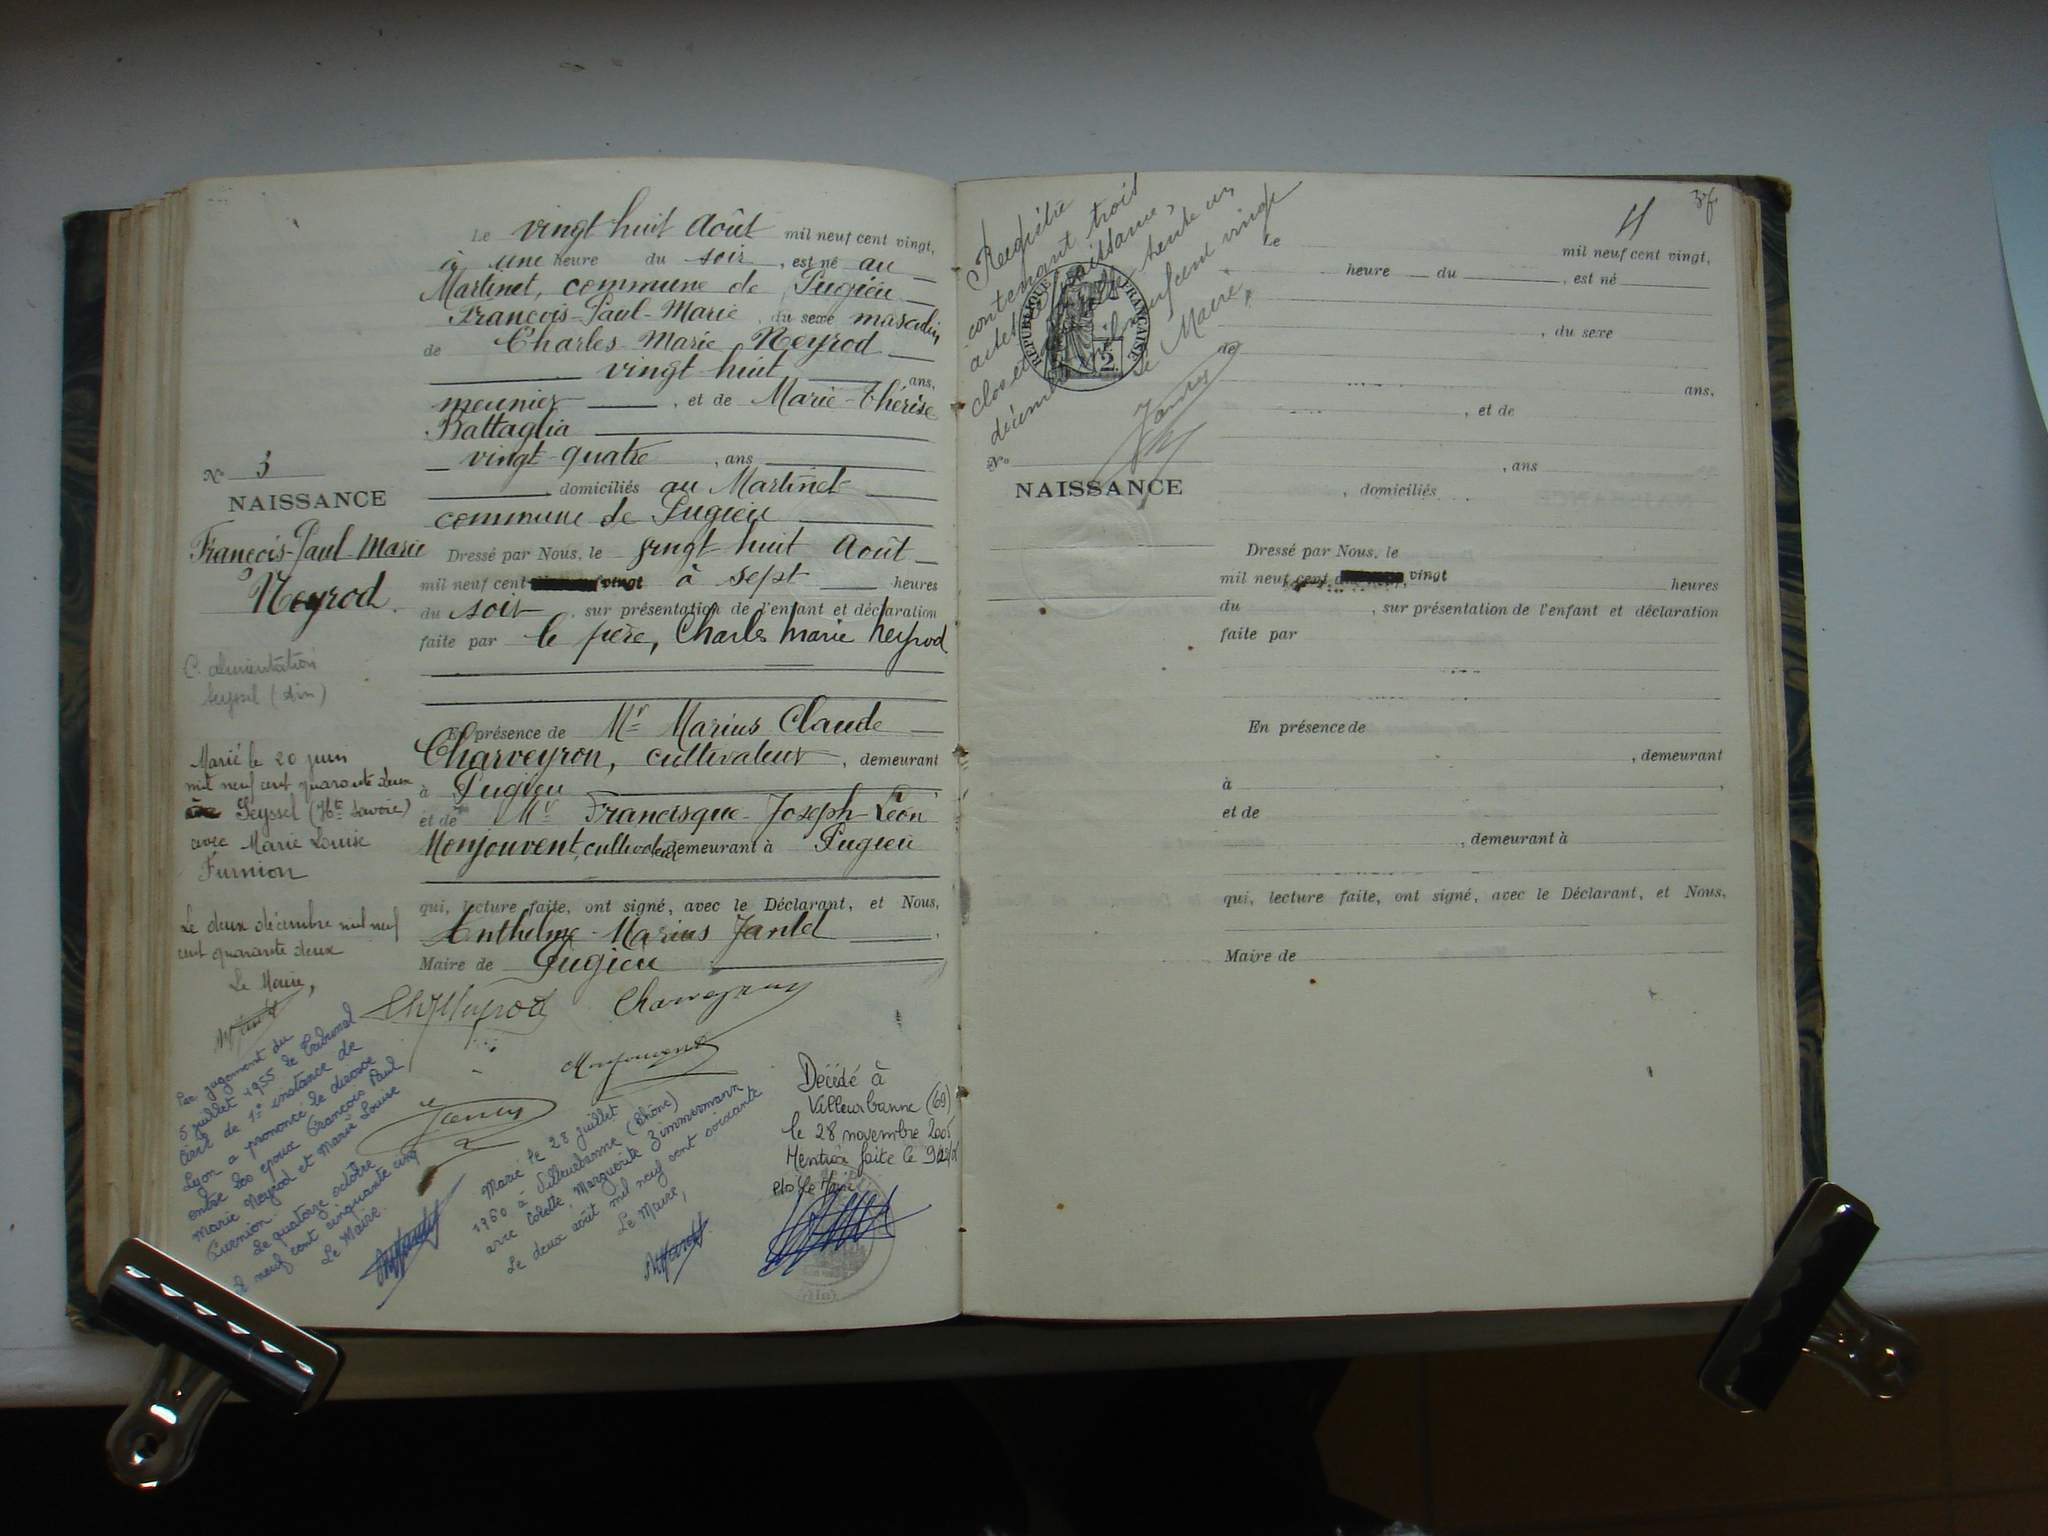 Le vingt huit Août mil neuf cent vingt,
à une heure du soir, est né au
Martinet, commune de Pugieu
François-Paul-Marie, du sexe masculin
de Charles Marie Neyrod
vingt huit ans,
meunier, et de Marie-Thérèse
Battaglia
vingt-quatre, ans
domiciliés au Martinet
commune de Pugieu
Dressé par Nous, le vingt huit Août
mil neuf cent vingt à sept heures
du soir, sur présentation de l'enfant et déclaration
faite par le père, Charles Marie Neyrod
En présence de Mr Marius Claude
Charveyron, cultivateur, demeurant
à Pugieu
et de Mr Francisque-Joseph-Léon
Monjouvent, cultivateur demeurant à Pugieu
qui, lecture faite, ont signé, avec le Déclarant, et Nous,
Anthelme-Marius Jantet
Maire de Pugieu
Ch Neyrod Charveyron
Monjouvent
N° 3
NAISSANCE
François-Paul Marie
Neyrod.
C. alimentation
Seyssel (Ain)
Marié le 20 juin
mil neuf cent quarante deux
à Seyssel (Hte Savoie)
avec Marie Louise
Furnion
Le deux décembre mil neuf
cent quarante deux
Le Maire,
Par jugement du
5 juillet 1955 le Tribunal
Civil de 1e instance de
Lyon a prononcé le divorce
entre les époux François Paul
Marie Neyrod et Marie Louise
Furnion.
Le quatorze octobre
neuf cent cinquante cinq
Le Maire.
Marié le 28 juillet
1960 à Villeurbanne (Rhône)
avec Colette Marguerite Zimmermann
Le deux août mil neuf cent soixante
Le Maire,
Décédé à
Villeurbanne (69)
le 28 novembre
Mention faite le
Le Maire
Registre
contenant trois
actes de naissance,
clos et trente un
décembre mil neuf cent vingt
Le Maire,
RÉPUBLIQUE FRANÇAISE
2
37.
Le mil neuf cent vingt,
heure du, est né
, du sexe
de
ans,
, et de
, ans
N°
NAISSANCE
, domiciliés
Dressé par Nous, le
mil neuf cent vingt heures
du, sur présentation de l'enfant et déclaration
faite par
En présence de
, demeurant
à
et de
, demeurant à
qui, lecture faite, ont signé, avec le Déclarant, et Nous,
Maire de